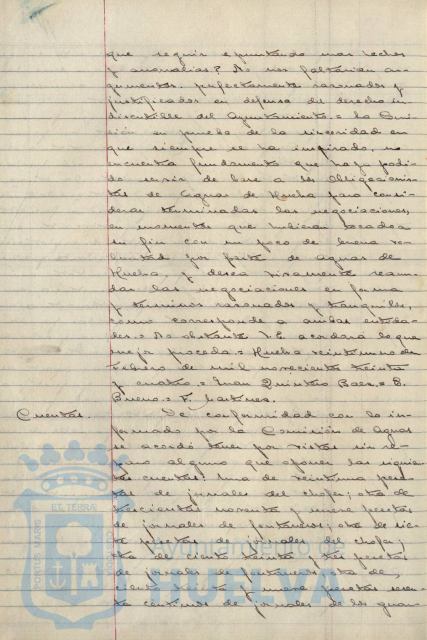 que seguir apuntando mas hechos
y anomalias? No nos faltarian ar-
gumentos perfectamente razonados y
justificados en defensa del derecho in-
discutible del Ayuntamiento.= La Comi-
sión en prueba de la sinceridad en
que siempre se ha inspirado, no
encuentra fundamento que haya podi-
do servir de base a los Obligacionis-
tas de Aguas de Huelva para consi-
derar terminadas las negociaciones,
en momentos que hubieran tocado a
su fin con un poco de buena vo-
luntad por parte de Aguas de
Huelva, y desea vivamente reanu-
dar las negociaciones en forma
y terminos razonados y tranquilos,
como corresponde a ambas entida-
des.= No obstante V.E. acordará lo que
mejor proceda.= Huelva veintiuno de
Febrero de mil novecientos treinta
y cuatro.= Juan Quintero Baez.= B.
Bueno.= F. Martinez.
Cuentas. De conformidad con lo in-
formado por la Comisión de Aguas
se acordó tener por vistas sin re-
paro alguno que oponer las siguien-
tes cuentas: Una de veintiuna pese-
tas de jornales del chofer; otra de
trescientas noventa y nueve pesetas
de jornales de fontaneros; otra de sie-
te pesetas de jornales del chofer;
otra de ciento treinta y tres pesetas
de jornales de fontaneros; otra de
ciento treinta y nueve pesetas sesen-
ta centimos de jornales de los guar-
PORTUS MARIS
ET TERRAE
CUSTODIA
Ayuntamiento de
HUELVA